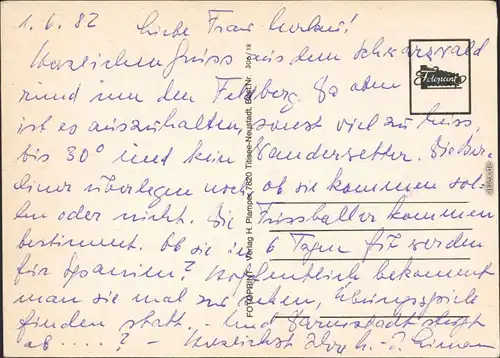 1.6.82 Liebe Frau
Herzlichen Gruss aus dem Schwarzwald
rund um den Feldberg. Da oben
ist es auszuhalten, sonst viel zu heiss,
bis 30° und kein Wanderwetter. Die Ber-
liner überlegen noch ob sie kommen sol-
len oder nicht. Die Fussballer kommen
bestimmt. Ob sie in 6 Tagen fit werden
für Spanien? Hoffentlich bekommt
man sie mal zu sehen, Übungsspiele
finden statt, - Und Darmstadt steigt
ab....? - Herzlichst Ihre
Fotoprint
FOTOPRINT - Verlag H. Plamper, 7820 Titisee-Neustadt, Best.-Nr. 306/18